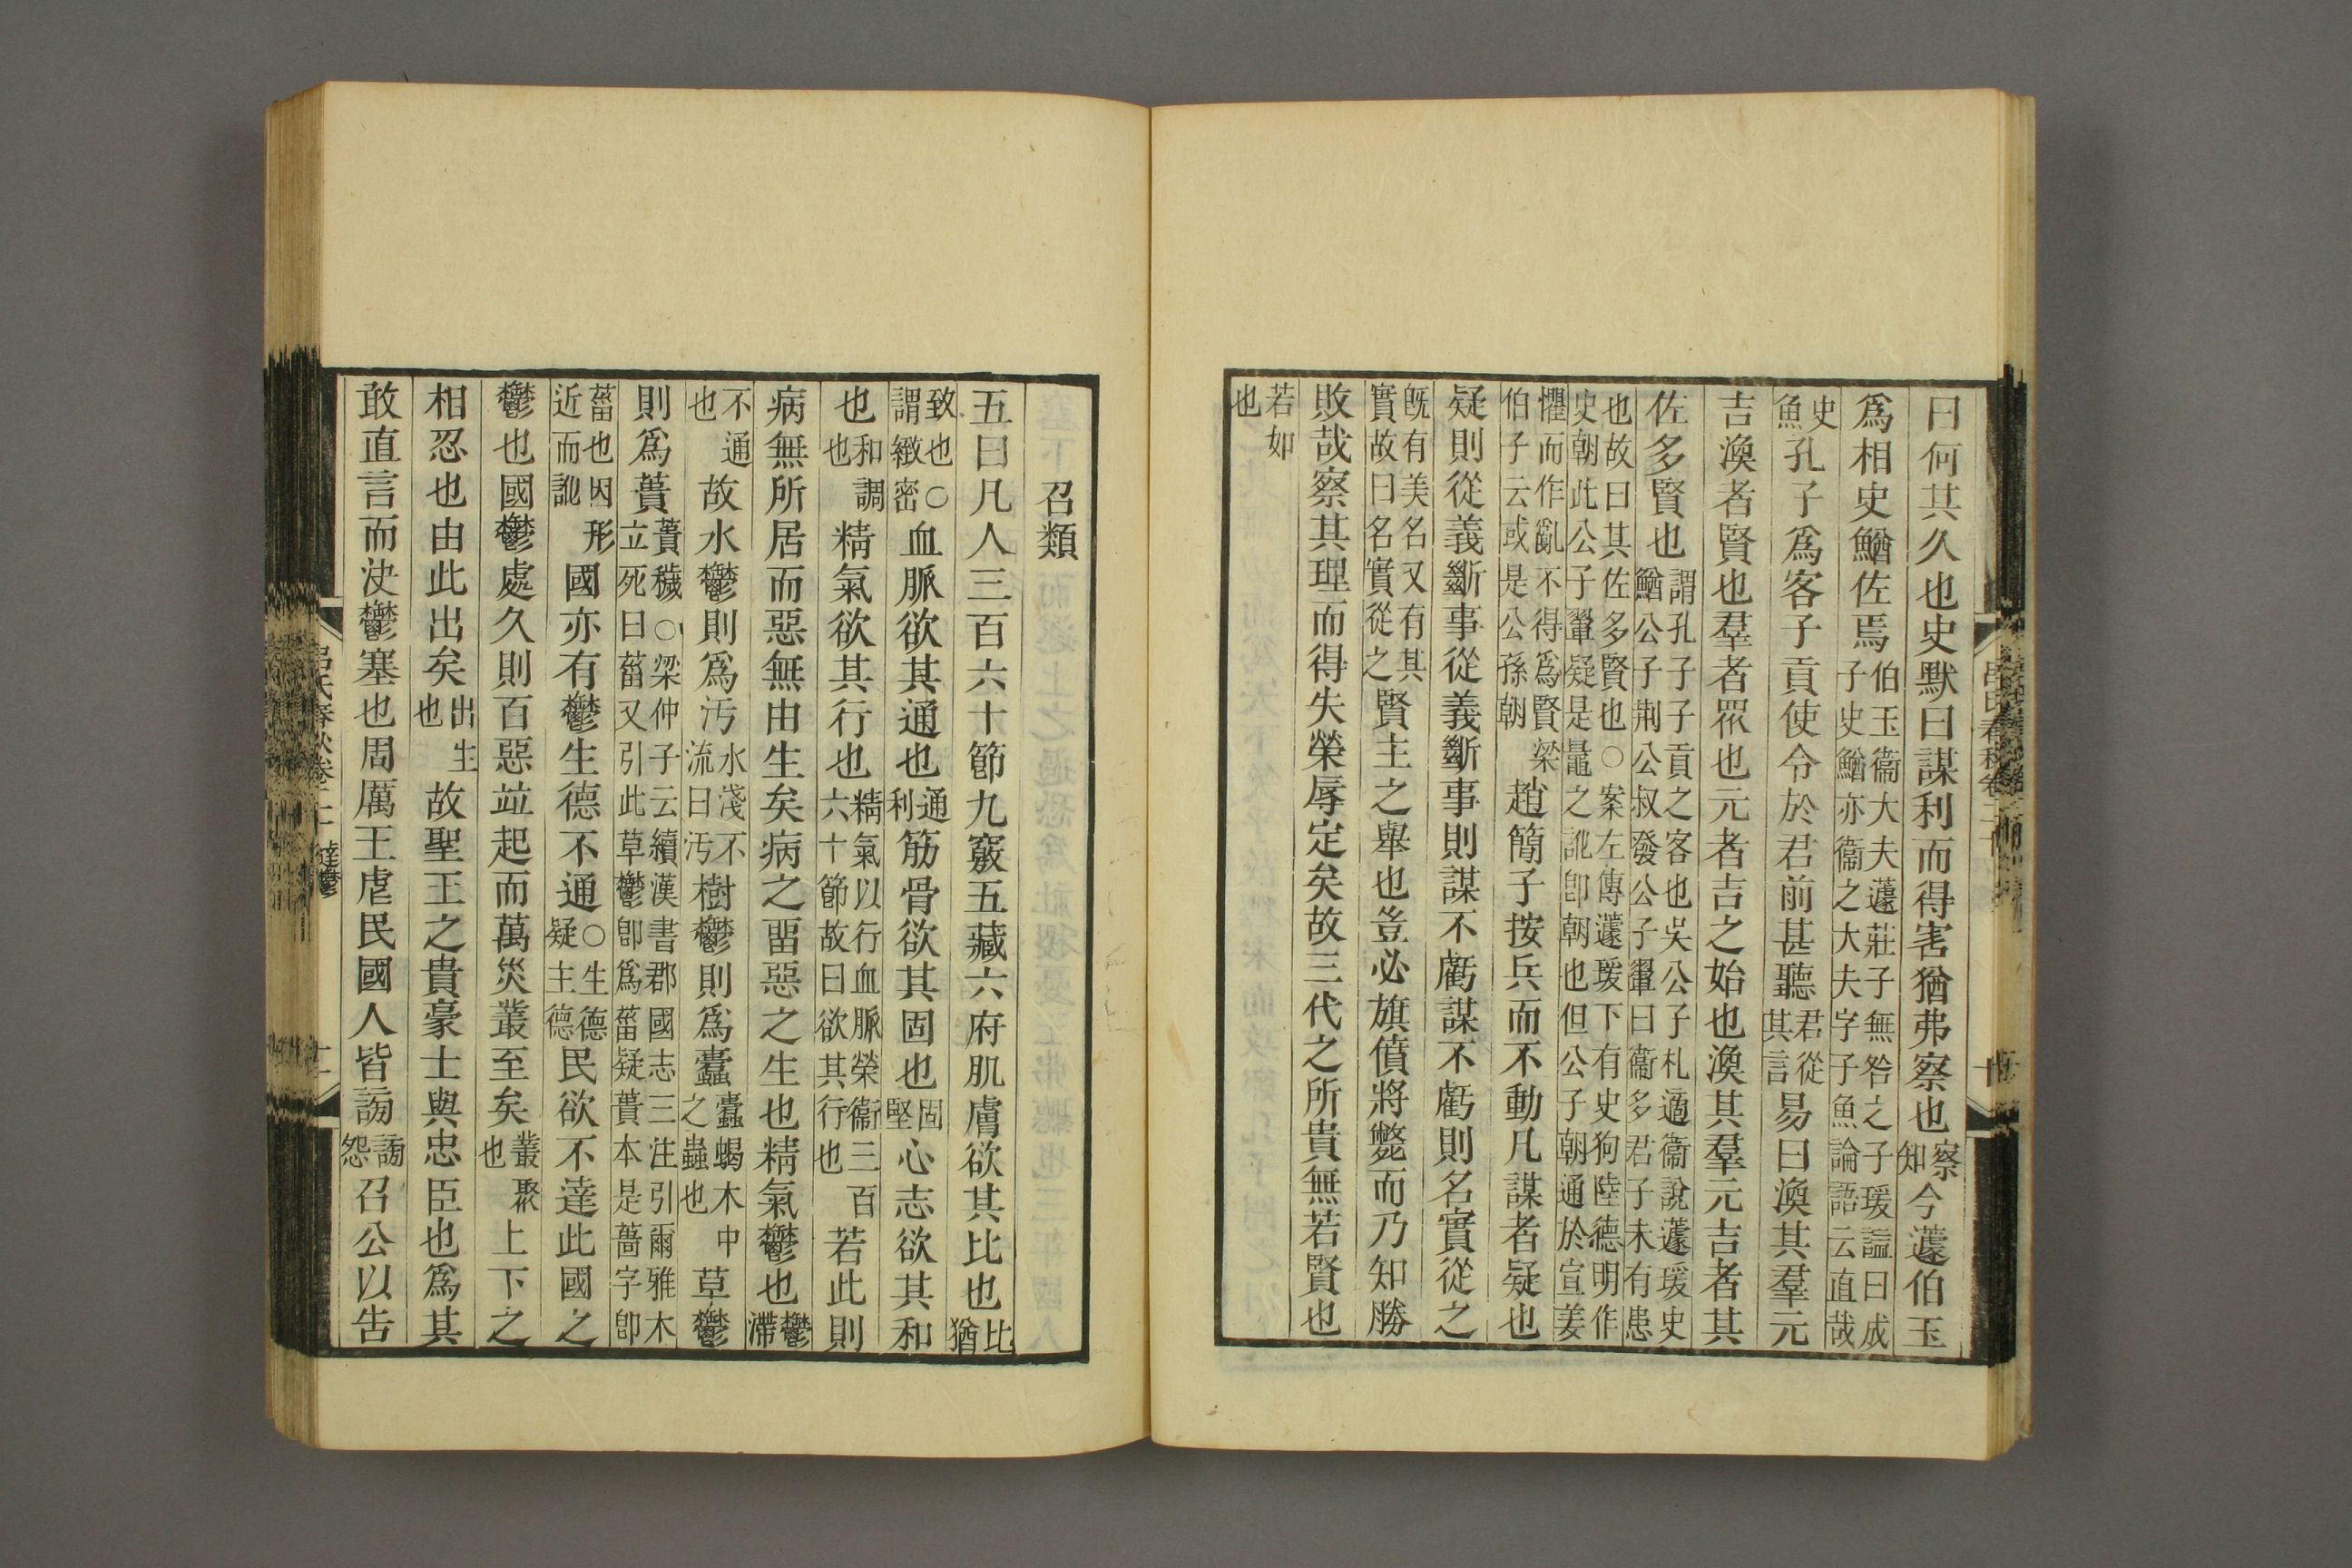 曰何其久也史默曰謀利而得害猶弗察也察知今蘧伯玉
爲相史鰌佐焉伯玉衞大夫蘧莊子無咎之子瑗諡曰成子史鰌亦衞之大夫字子魚論語云直哉
史魚孔子爲客子貢使令於君前甚聽君從其言易曰渙其羣元
吉渙者賢也羣者眾也元者吉之始也渙其羣元吉者其
佐多賢也謂孔子子貢之客也吳公子札適衞說蘧瑗史鰌公子荆公叔發公子鼂曰衞多君子未有患
也故曰其佐多賢也○案左傳蘧瑗下有史狗陸德明作史朝此公子鼂疑是鼂之訛卽朝也但公子朝通於宣姜
懼而作亂不得爲賢梁伯子云或是公孫朝趙簡子按兵而不動凡謀者疑也
疑則從義斷事從義斷事則謀不虧謀不虧則名實從之
旣有美名又有其實故曰名實從之賢主之舉也豈必旗僨將斃而乃知勝
敗哉察其理而得失榮辱定矣故三代之所貴無若賢也
若如也
呂氏春秋卷二十
十
召類
五曰凡人三百六十節九竅五藏六府肌膚欲其比也比猶
致也○謂緻密血脈欲其通也通利筋骨欲其固也固堅心志欲其和
也和調也精氣欲其行也精氣以行血脈榮衞三百六十節故曰欲其行也若此則
病無所居而惡無由生矣病之畱惡之生也精氣鬱也鬱滯
不通也故水鬱則爲汚水淺不流曰汚樹鬱則爲蠹蠹蝎木中之蟲也草鬱
則爲蕢蕢穢○梁仲子云續漢書郡國志三注引爾雅木立死曰菑又引此草鬱卽爲菑疑蕢本是葘字卽
菑也因形近而訛國亦有鬱生德不通○生德疑主德民欲不達此國之
鬱也國鬱處久則百惡竝起而萬災叢至矣叢聚也上下之
相忍也由此出矣出生也故聖王之貴豪士與忠臣也爲其
敢直言而決鬱塞也周厲王虐民國人皆謗謗怨召公以告
呂氏春秋卷二十 達鬱
十一